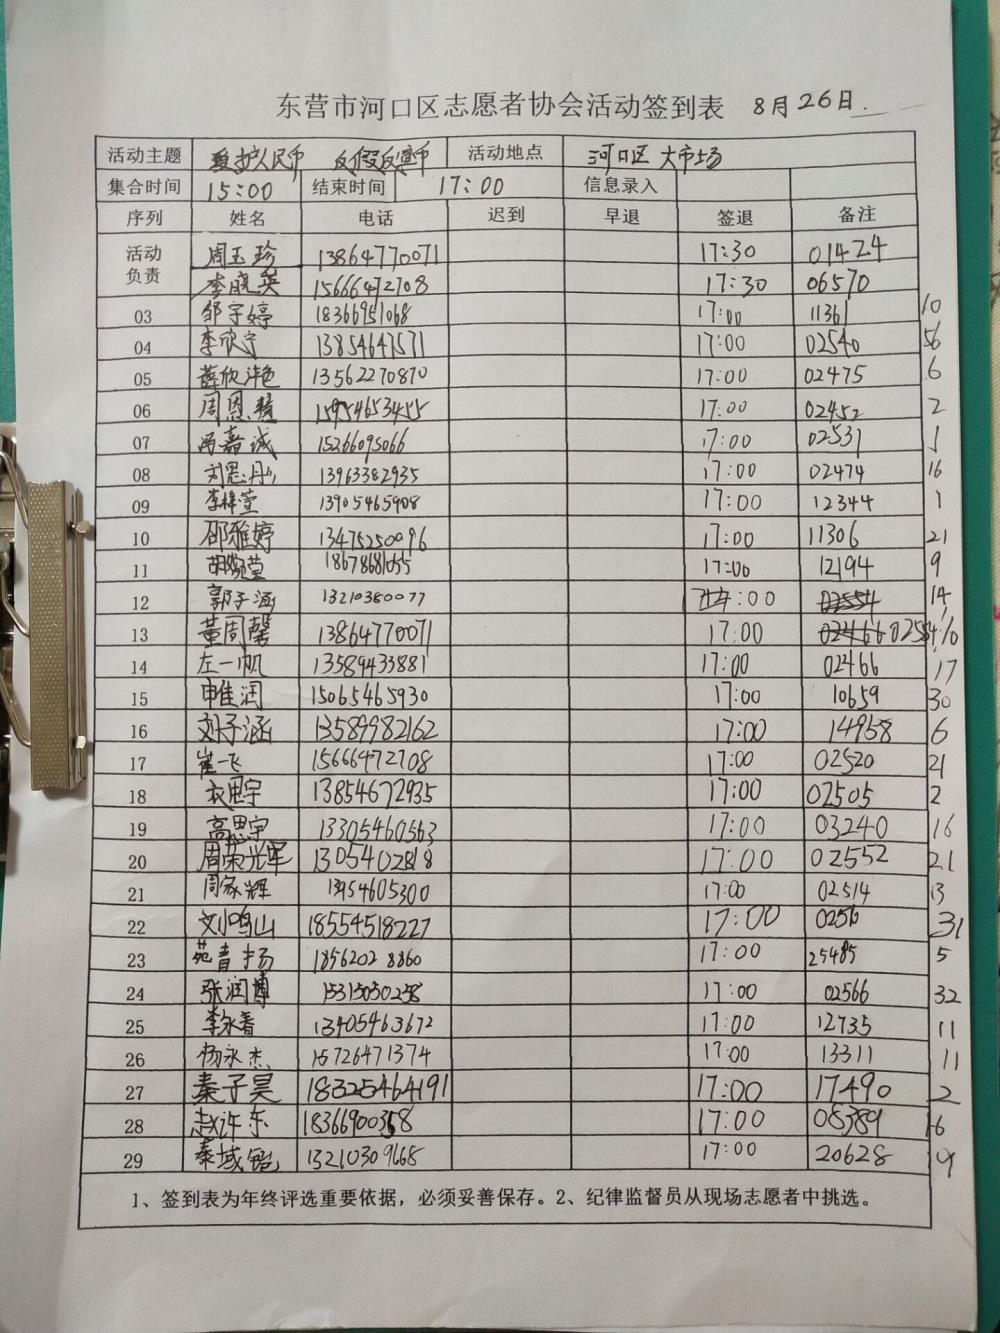 东营市河口区志愿者协会活动签到表 8月26日.
活动主题 爱护人民币 反假反宣币 活动地点 河口区 大市场
集合时间 15:00 结束时间 17:00 信息录入
序列 姓名 电话 迟到 早退 签退 备注
活动负责 周玉珍 13864770071 17:30 01424
李晓英 15666472708 17:30 06570
03 邹宇婷 18366951068 17:00 11361 10
04 李欣宁 13854641571 17:00 02540 56
05 薛欣沣 13562270870 17:00 02475 6
06 周恩慧 15954653455 17:00 02452 2
07 冯嘉诚 15266095066 17:00 02531 1
08 刘思彤 13963382935 17:00 02474 16
09 李梓萱 13905465908 17:00 12344 1
10 邵雅婷 13475250096 17:00 11306 21
11 胡婉莹 18678681055 17:00 12194 9
12 郭子涵 13210380077 17:00 02554 14
13 董周馨 13864770071 17:00 02466 02554 10
14 左一帆 13589433881 17:00 02466 17
15 申佳润 15065465930 17:00 10659 30
16 刘子涵 13589982162 17:00 14958 6
17 崔一飞 15666472708 17:00 02520 21
18 衣思宇 13854672935 17:00 02505 2
19 高思宇 13305460563 17:00 03240 16
20 周荣光军 1305402818 17:00 02552 21
21 周家辉 13954605300 17:00 02514 13
22 刘鸣山 18554518227 17:00 0256 31
23 苑青扬 18562028860 17:00 25485 5
24 张润博 15315030258 17:00 02566 32
25 李永春 13405463672 17:00 12735 11
26 杨永杰 15726471374 17:00 13311 11
27 秦子昊 18325464191 17:00 17490 2
28 赵许东 18366900368 17:00 08389 16
29 秦域铠 13210309668 17:00 20628 19
1、签到表为年终评选重要依据，必须妥善保存。2、纪律监督员从现场志愿者中挑选。